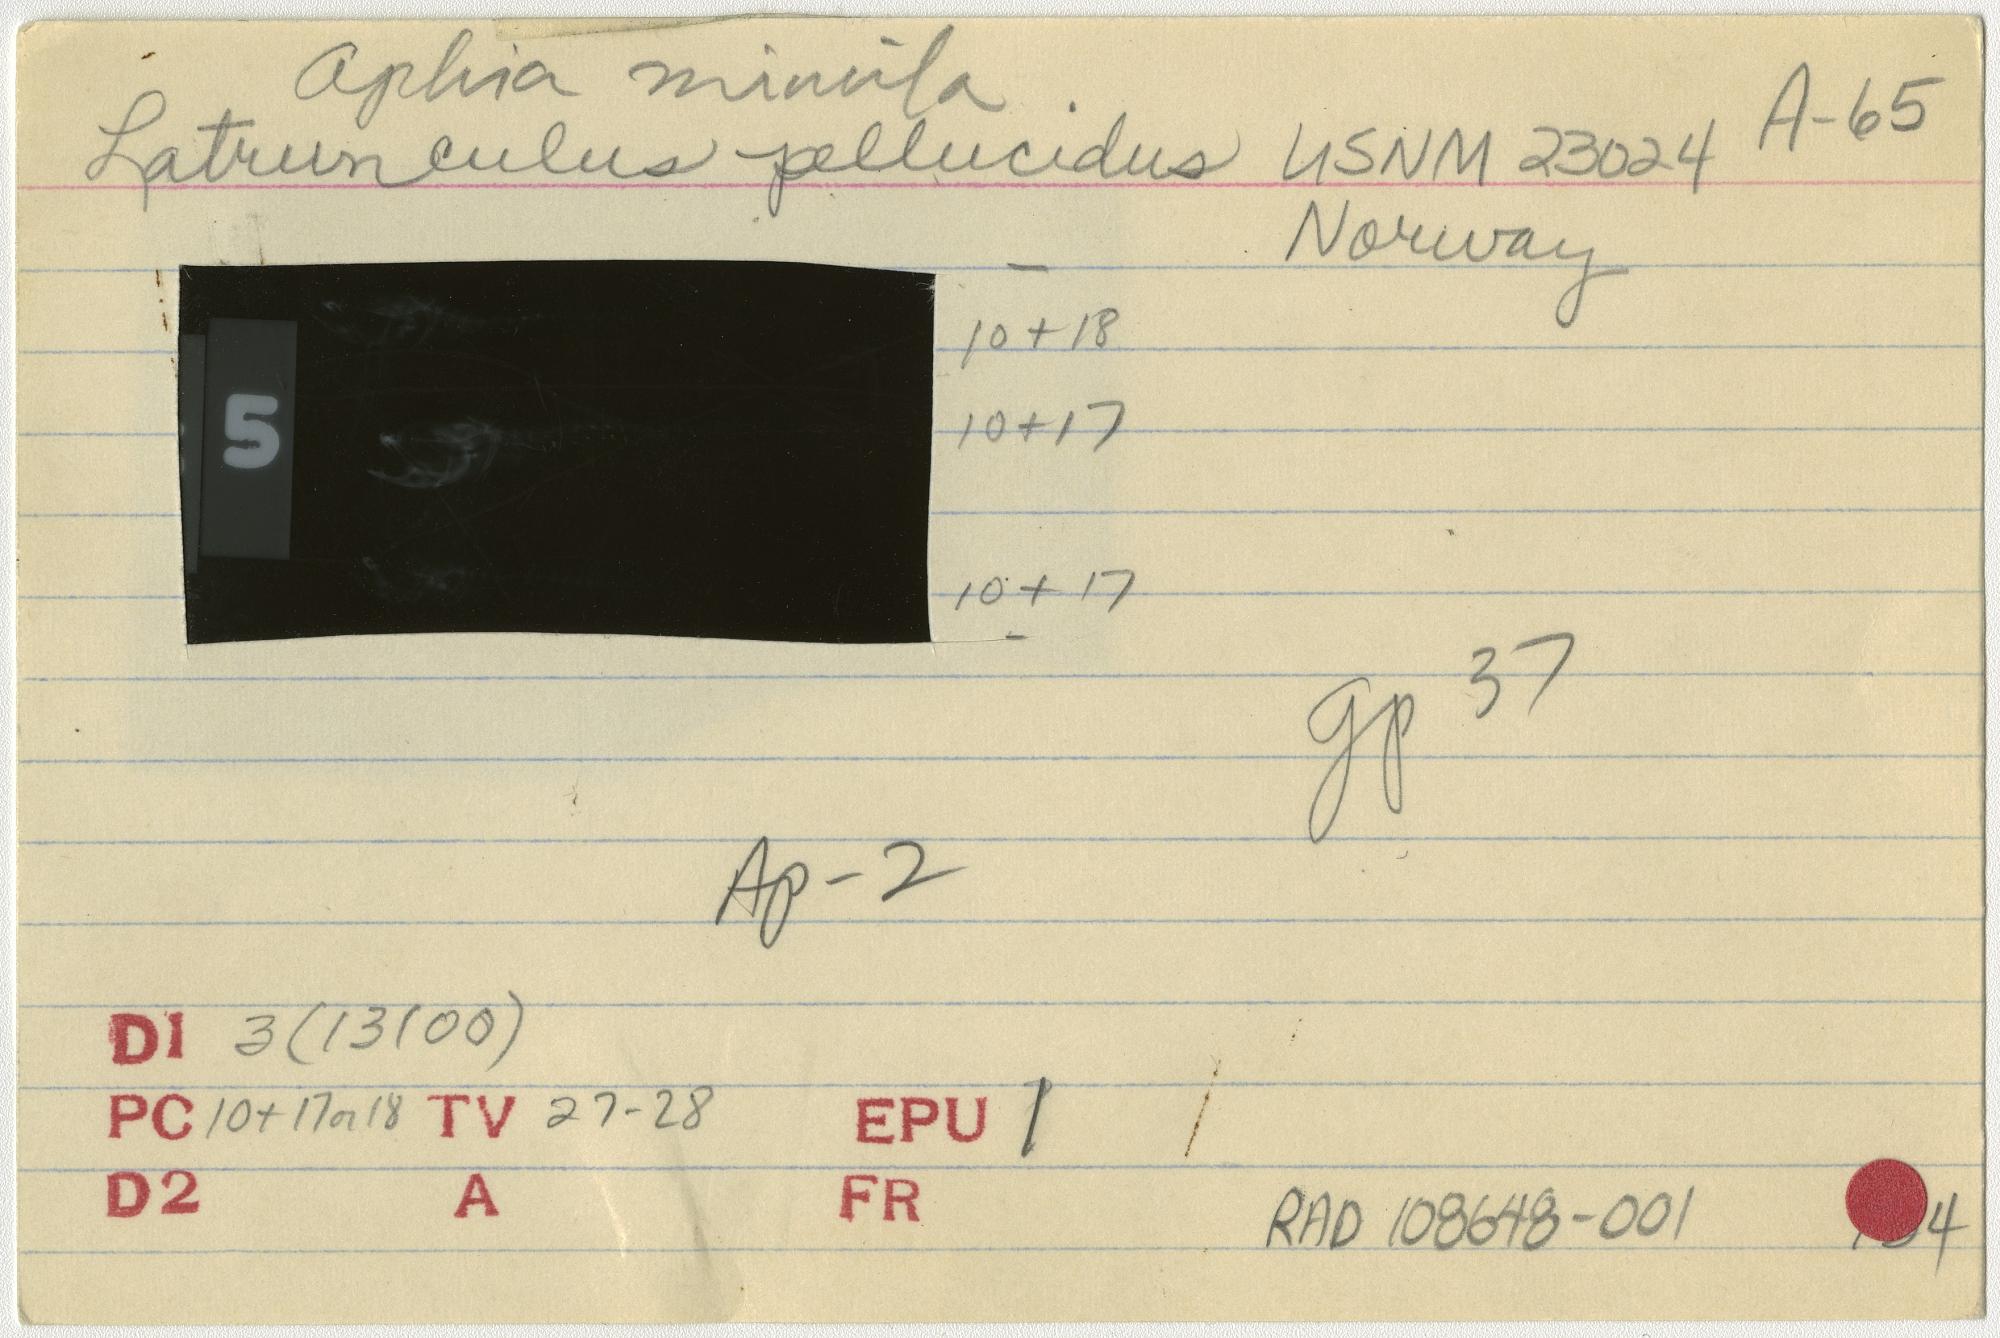 Aphia minuta
Latrunculus pellucidus USNM 23024 A-65
Norway
10+18
5
10+17
10+17
gp 37
Ap-2
D1 3(13100)
PC 10+17 or 18 TV 27-28 EPU 1
D2 A FR
RAD 108648-001